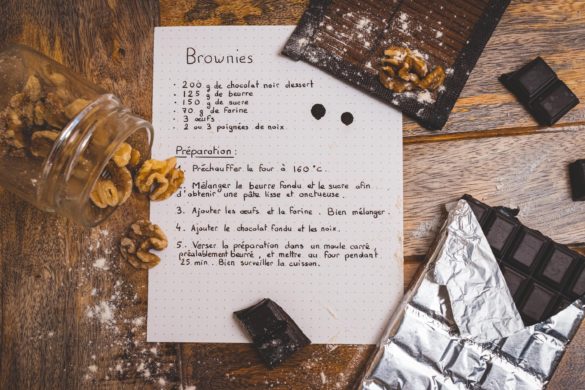 Brownies
· 200 g de chocolat noir dessert
· 125 g de beurre
· 150 g de sucre
· 70 g de farine
· 3 œufs
· 2 ou 3 poignées de noix.
Préparation :
1. Préchauffer le four à 160 °C.
2. Mélanger le beurre fondu et le sucre afin
d'obtenir une pâte lisse et onctueuse.
3. Ajouter les œufs et la farine. Bien mélanger.
4. Ajouter le chocolat fondu et les noix.
5. Verser la préparation dans un moule carré,
préalablement beurré, et mettre au four pendant
25 min. Bien surveiller la cuisson.